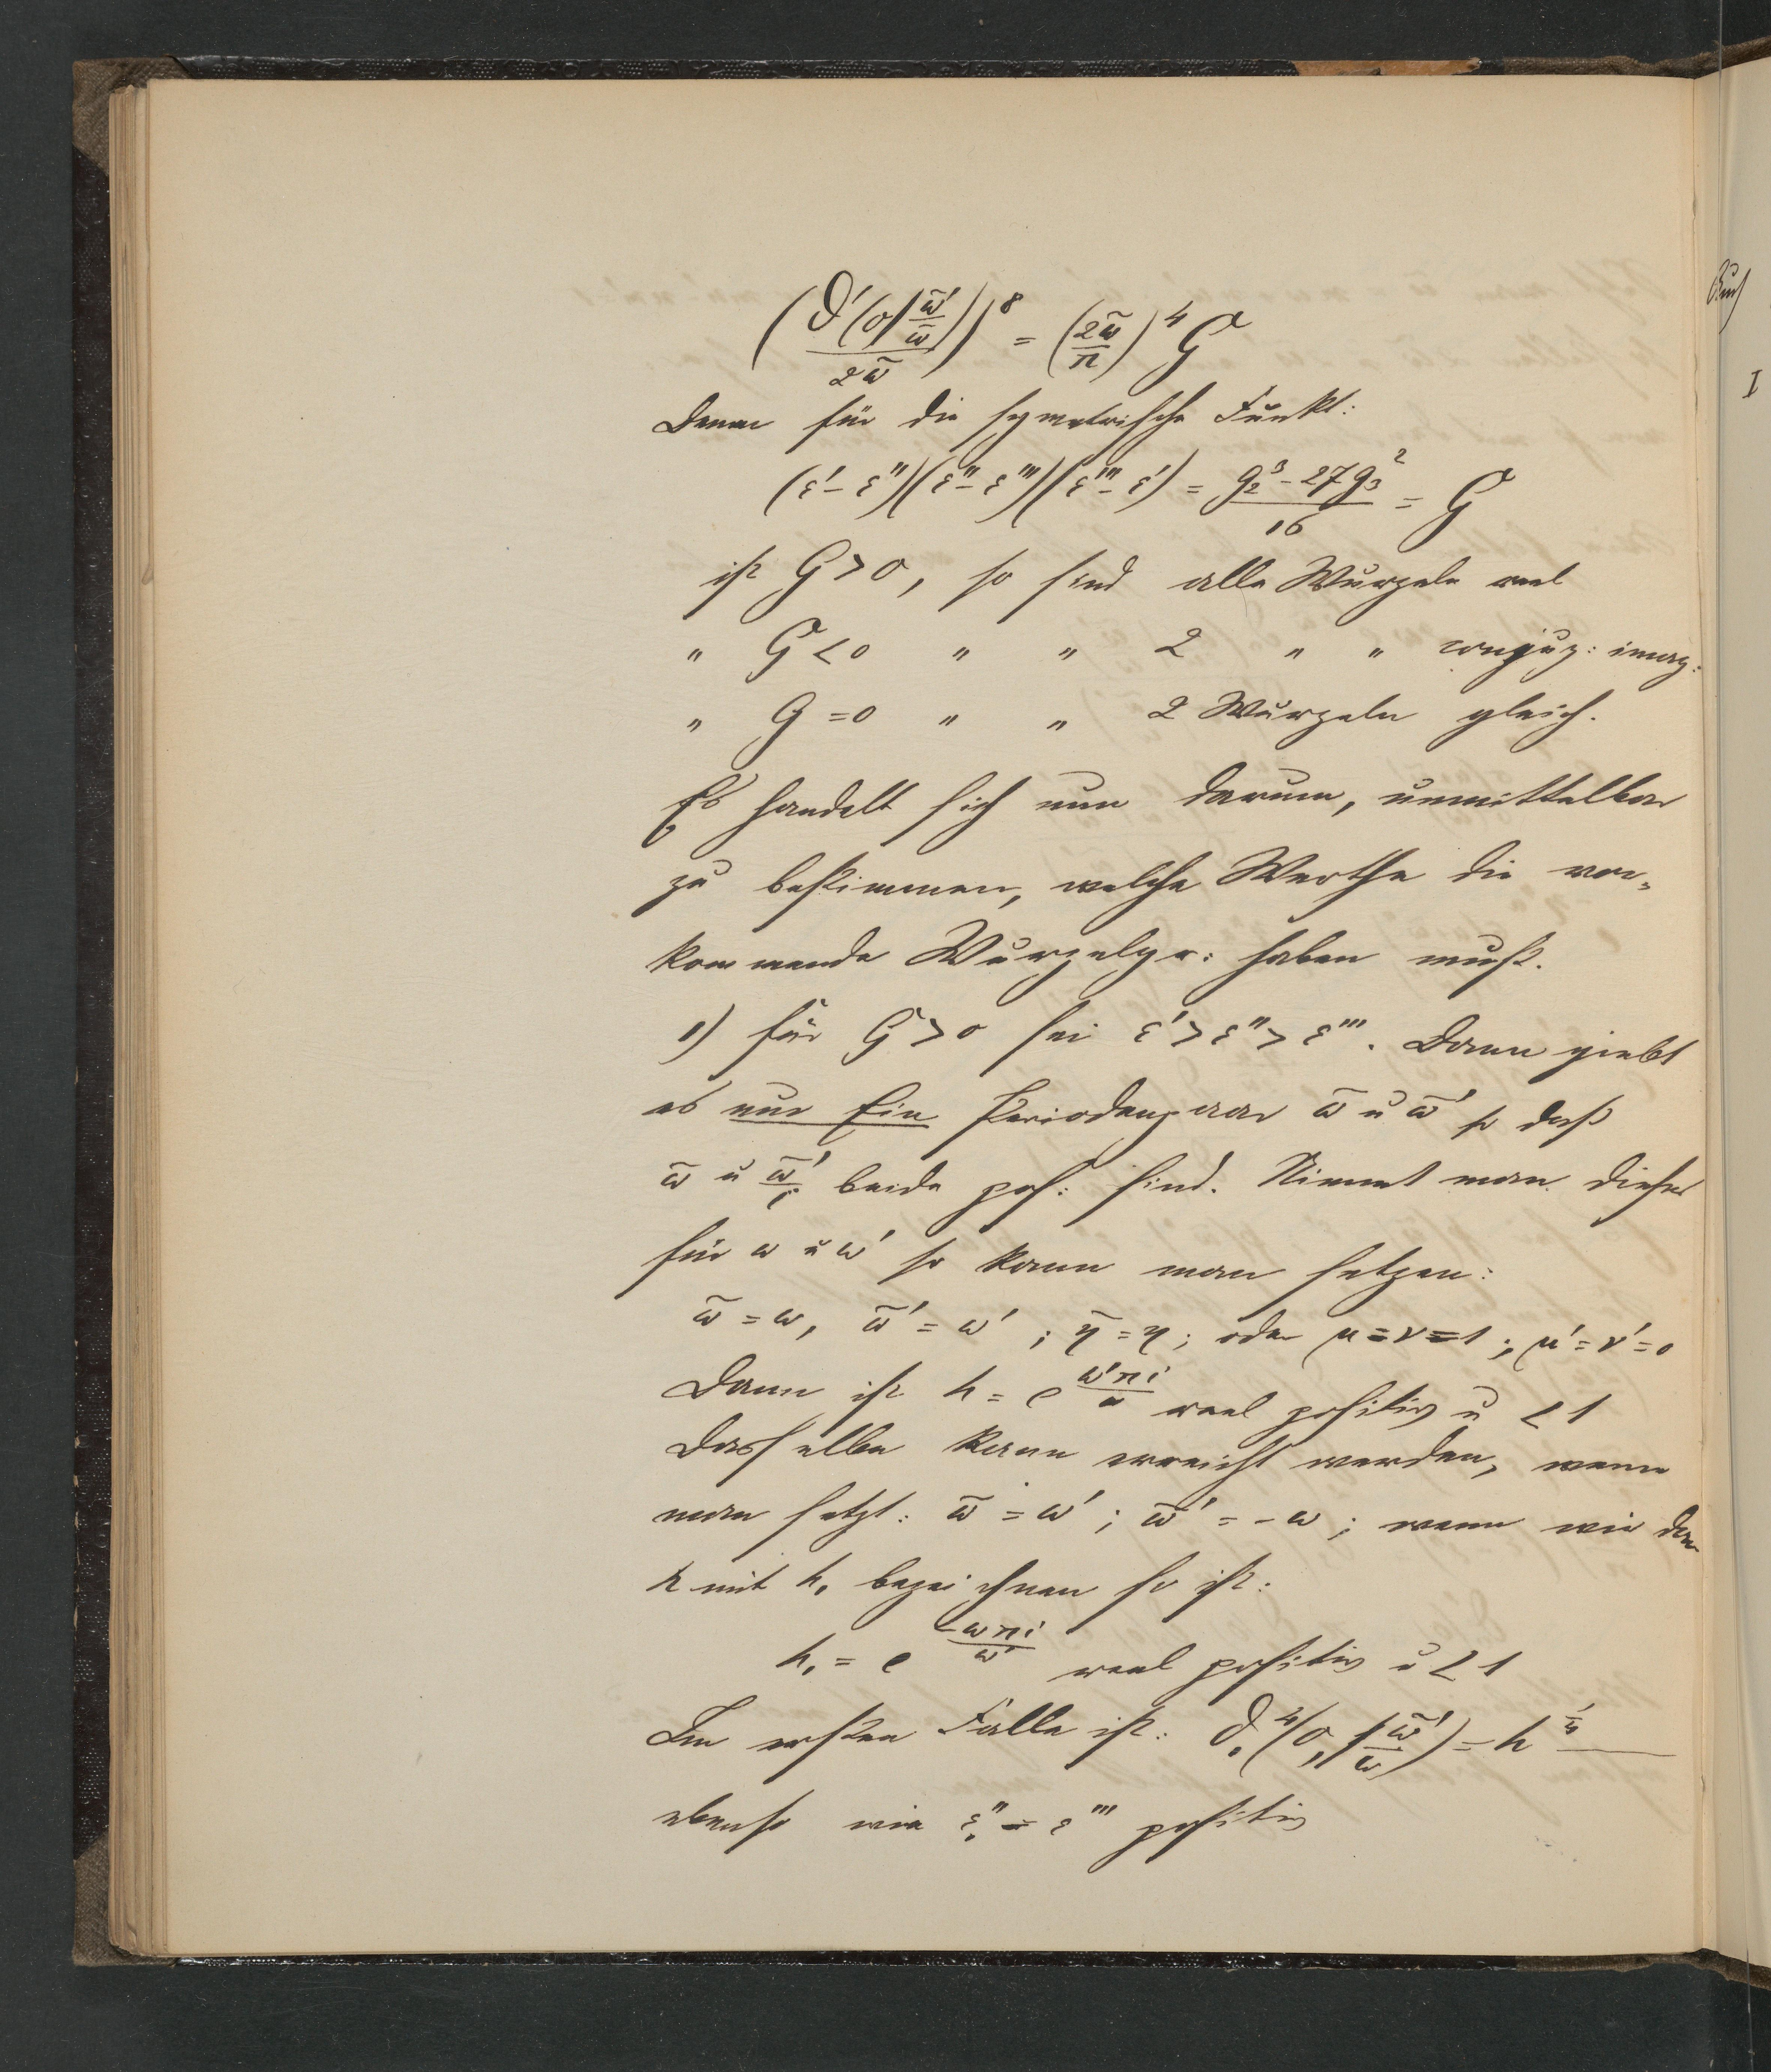 (ϑ'(0|ω̃'/ω̃)/2ω̃)⁸ = (2ω̃/π)⁴ G
Denn für die symetrische Funkt:
(ε'-ε'')(ε''-ε''')(ε'''-ε') = (g₂³-27g₃²)/16 = G
ist G>0, so sind alle Wurzeln reel
" G<0 " " 2 " " conjug: imag:
" G=0 " " 2 Wurzeln gleich.
Es handelt sich nun darum, unmittelbar
zu bestimmen, welche Werthe die vor-
kommende Wurzelgr: haben muß.
1) für G>0 sei ε'>ε''>ε'''. Dann giebt
es nur Ein Periodenpaar ω̃ u ω̃' so daß
ω̃ u ω̃'/i beide pos: sind. Nimmt man dieses
für ω u ω' so kann man setzen:
ω̃=ω, ω̃'=ω'; η̃=η; oder μ=ν=1; μ'=ν'=0
Dann ist h = e^(ω'πi/ω) reel positiv u <1
Dasselbe kann erreicht werden, wenn
man setzt: ω̃=ω'; ω̃'=-ω; wenn wir dann
h mit h₁ bezeichnen so ist:
h₁ = e^(-ωπi/ω') reel positiv u <1
Im ersten Falle ist: ϑ₁⁴(0,|ω̃'/ω̃) = h^¼ —
ebenso wie ε'' - ε''' positiv
Buch
I